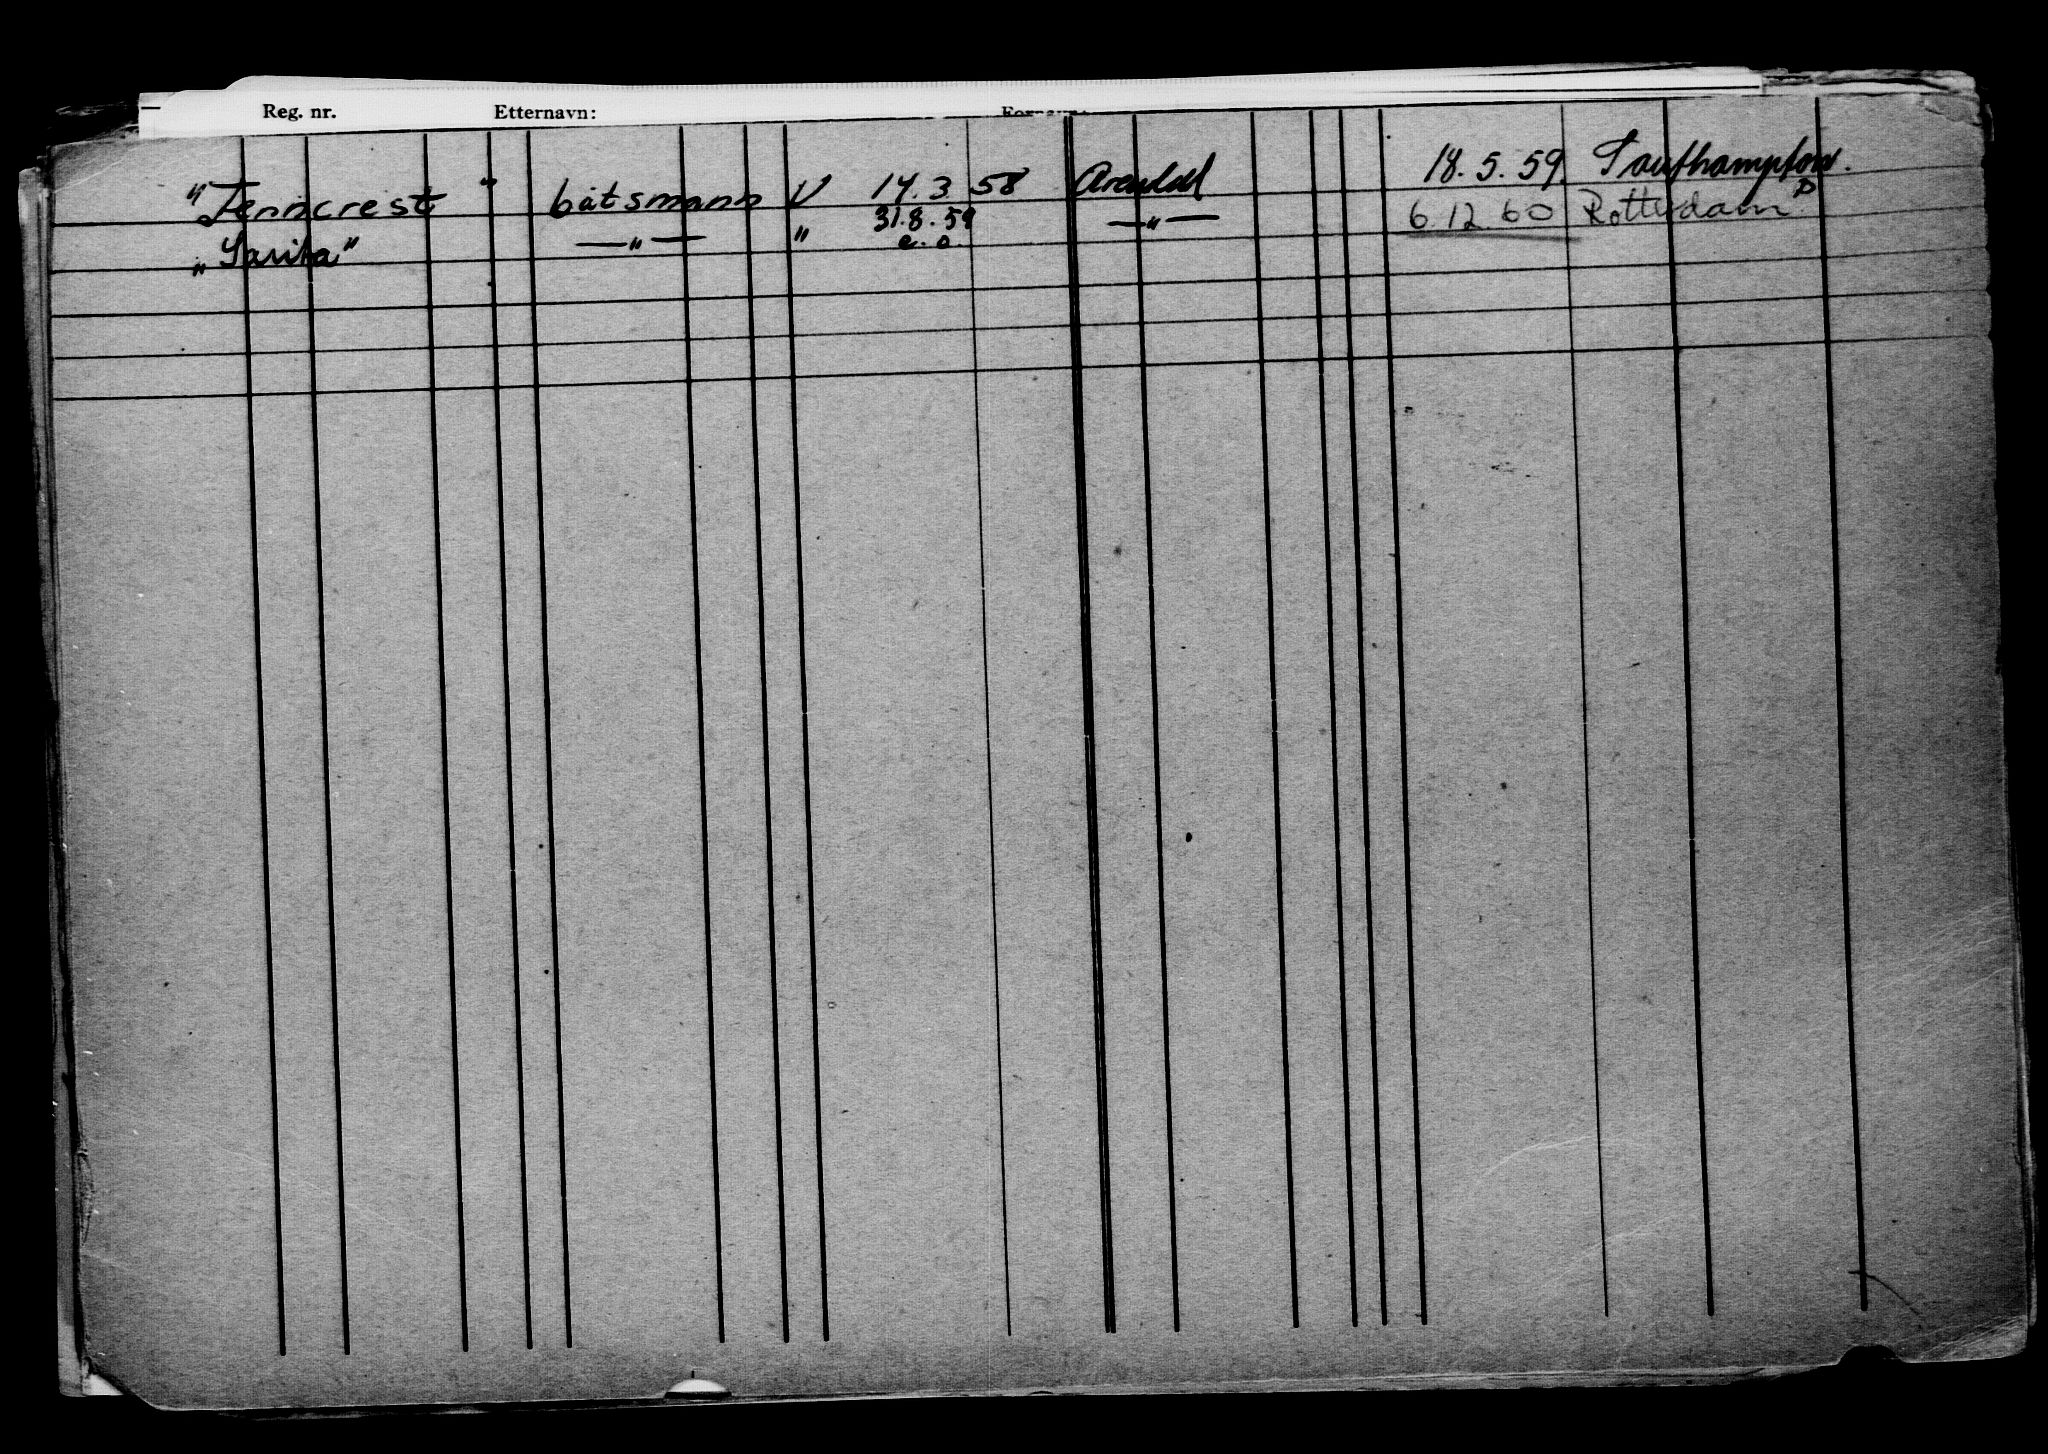 Reg. nr. Etternavn: Fornavn:
"Ferncrest" båtsmann V 14.3 58 Arendal 18.5.59. Southampton.
"Sarita" —"— " 31.8.59 e.o. —"— 6.12.60 Rotterdam